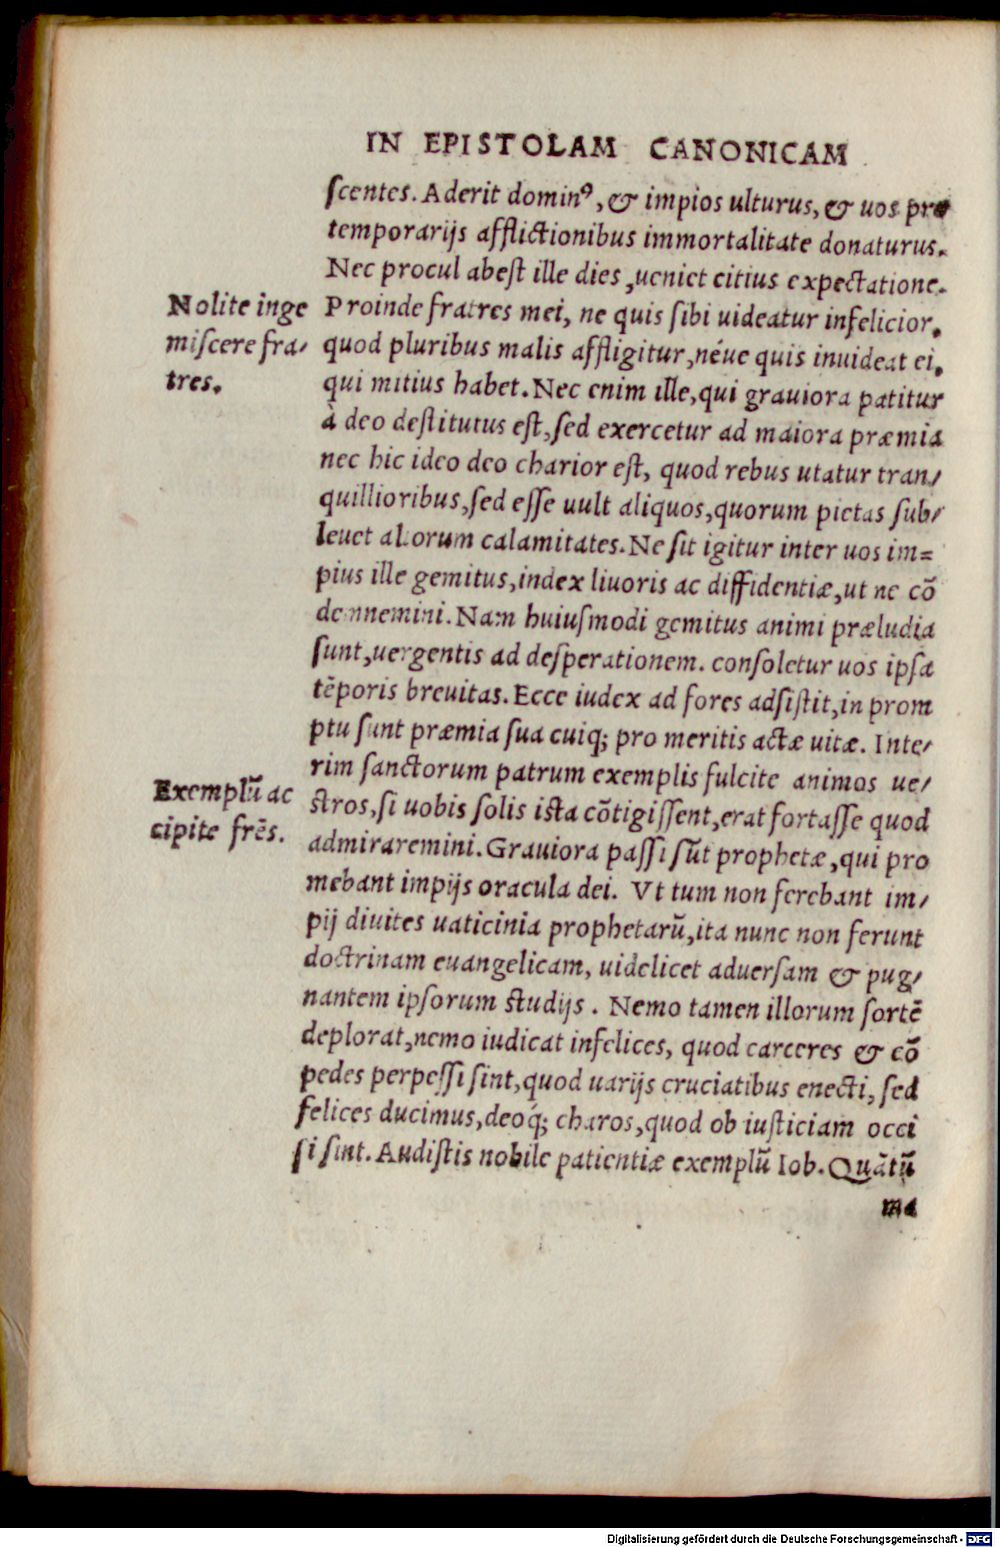 IN EPISTOLAM CANONICAM
ſcentes. Aderit dominꝰ, & impios ulturus, & uos pro
temporarijs afflictionibus immortalitate donaturus.
Nec procul abeſt ille dies, ueniet citius expectatione.
Nolite inge
miſcere fra/
tres.
Proinde fratres mei, ne quis ſibi uideatur infelicior,
quod pluribus malis affligitur, néue quis inuideat ei,
qui mitius habet. Nec enim ille, qui grauiora patitur
à deo deſtitutus eſt, ſed exercetur ad maiora præmia
nec hic ideo deo charior eſt, quod rebus utatur tran/
quillioribus, ſed eſſe uult aliquos, quorum pietas ſub/
leuet aliorum calamitates. Ne ſit igitur inter uos im=
pius ille gemitus, index liuoris ac diffidentiæ, ut ne cõ
demnemini. Nam huiuſmodi gemitus animi præludia
ſunt, uergentis ad deſperationem. conſoletur uos ipſa
tẽporis breuitas. Ecce iudex ad fores adſiſtit, in prom
ptu ſunt præmia ſua cuiq; pro meritis actæ uitæ. Inte/
rim ſanctorum patrum exemplis fulcite animos ue/
Exemplũ ac
cipite frẽs.
ſtros, ſi uobis ſolis iſta cõtigiſſent, erat fortaſſe quod
admiraremini. Grauiora paſſi ſũt prophetæ, qui pro
mebant impijs oracula dei. Vt tum non ferebant im/
pij diuites uaticinia prophetarũ, ita nunc non ferunt
doctrinam euangelicam, uidelicet aduerſam & pug/
nantem ipſorum ſtudijs. Nemo tamen illorum ſortẽ
deplorat, nemo iudicat infelices, quod carceres & cõ
pedes perpeſſi ſint, quod uarijs cruciatibus enecti, ſed
felices ducimus, deoq́; charos, quod ob iuſticiam occi
ſi ſint. Audiſtis nobile patientiæ exemplũ Iob. Quãtũ
ma
Digitalisierung gefördert durch die Deutsche Forschungsgemeinschaft - DFG